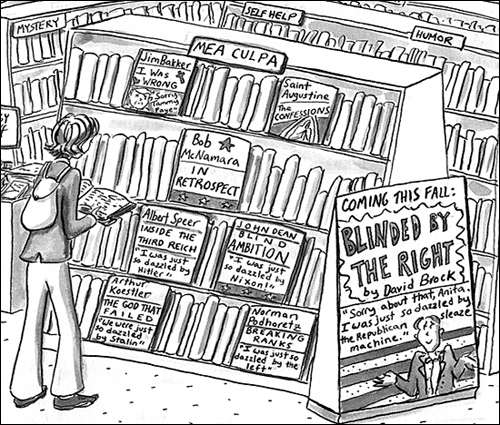 MYSTERY
SELF HELP
HUMOR
MEA CULPA
Jim Bakker
I WAS
WRONG
"Sorry,
Tammy
Faye"
Saint
Augustine
The
CONFESSIONS
Bob
McNamara
IN
RETROSPECT
Albert Speer
INSIDE THE
THIRD REICH
"I was just
so dazzled by
Hitler"
JOHN DEAN
BLIND
AMBITION
"I was just
so dazzled by
Nixon!"
Arthur
Koestler
THE GOD THAT
FAILED
"We were just
so dazzled
by Stalin"
Norman
Podhoretz
BREAKING
RANKS
"I was just so
dazzled by the
left"
COMING THIS FALL:
BLINDED BY
THE RIGHT
by David Brock
"Sorry about that, Anita.
I was just so dazzled by
the Republican sleaze
machine."